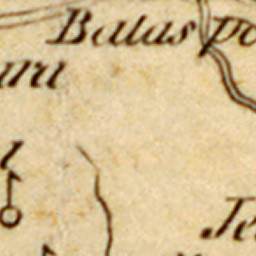 Balas po
uru
l
Je